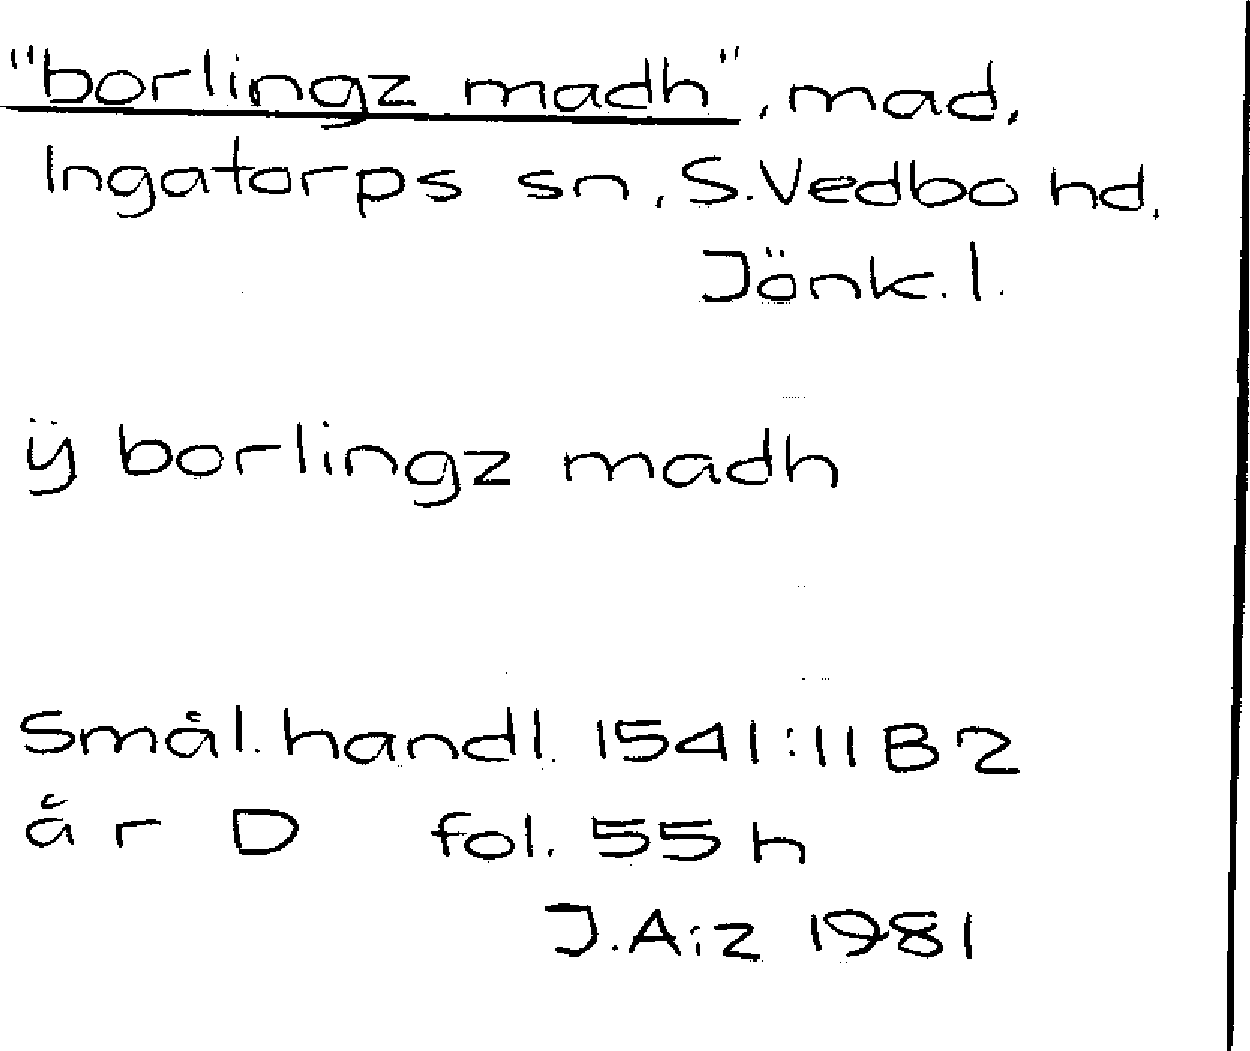 "borlingz madh", mad,
Ingatorps sn, S. Vedbo hd,
Jönk. l.
ÿ borlingz madh
Smål. handl. 1541:11 B 2
år D fol. 55 h
J. A:z 1981